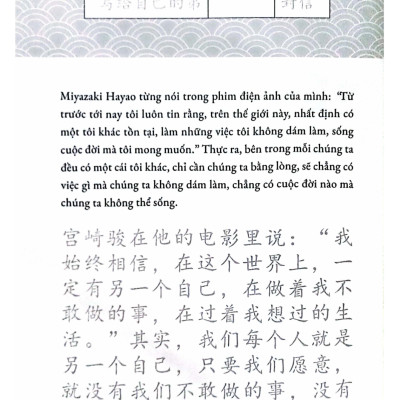 写给自己的第 封信
Miyazaki Hayao từng nói trong phim điện ảnh của mình: “Từ
trước tới nay tôi luôn tin rằng, trên thế giới này, nhất định có
một tôi khác tồn tại, làm những việc tôi không dám làm, sống
cuộc đời mà tôi mong muốn.” Thực ra, bên trong mỗi chúng ta
đều có một cái tôi khác, chỉ cần chúng ta bằng lòng, sẽ chẳng có
việc gì mà chúng ta không dám làm, chẳng có cuộc đời nào mà
chúng ta không thể sống.
宫崎骏在他的电影里说：“我
始终相信，在这个世界上，一
定有另一个自己，在做着我不
敢做的事，在过着我想过的生
活。”其实，我们每个人就是
另一个自己，只要我们愿意，
就没有我们不敢做的事，没有